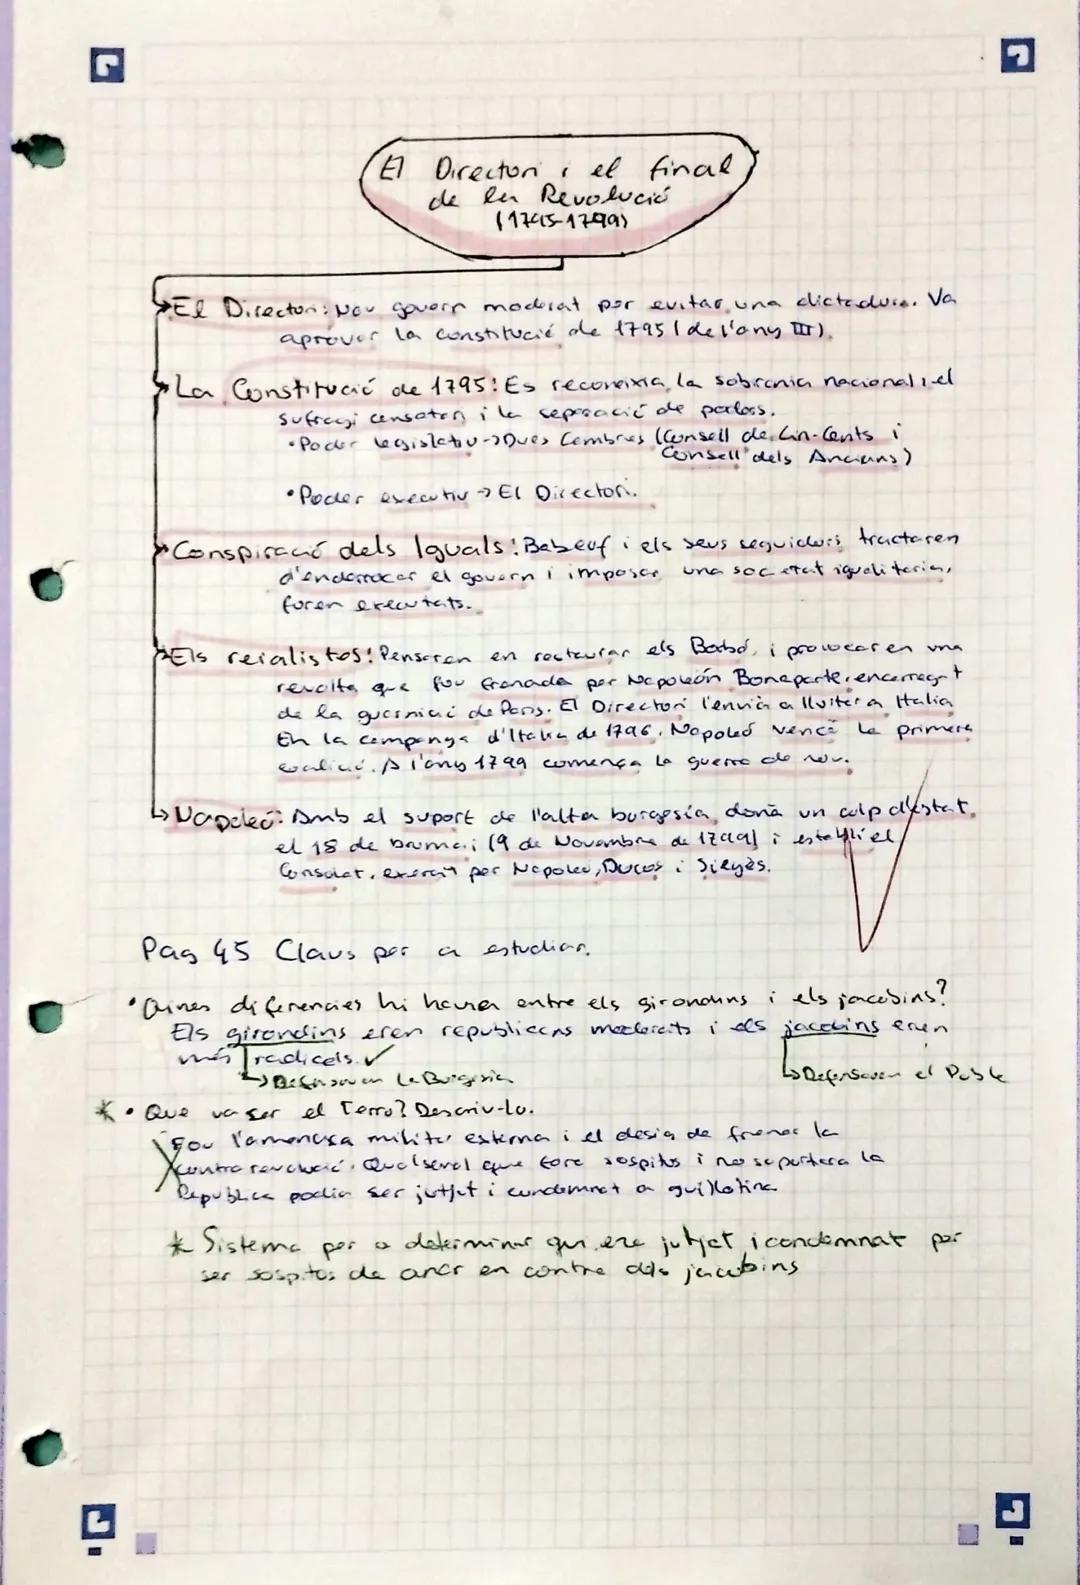 El Directori i el final
de la Revolució
(1795-1799)
El Directori: Nou govern moderat per evitar una dictadura. Va
aprovar la constitució de 1795 (de l'any III).
La Constitució de 1795: Es reconeixia la sobirania nacional, el
sufragi censatari i la separació de poders.
• Poder legislatiu → Dues Cambres (Consell de Cin-Cents i
Consell dels Ancians)
• Poder executiu → El Directori.
Conspiració dels Iguals: Babeuf i els seus seguidors tractaren
d'enderrocar el govern i imposar una societat igualitaria,
foren executats.
Els reialistes: Pensaren en restaurar els Borbó, i provocaren una
revolta que fou frenada per Napoleón Bonaparte, encarregat
de la guarnició de París. El Directori l'envià a lluitar a Italia
En la campanya d'Italia de 1796. Napoleó vencé la primera
coalició. A l'any 1799 comença la guerra de nou.
Napoleó: Amb el suport de l'alta burgesía, donà un colp d'estat,
el 18 de brumari (9 de Novembre de 1799) i establí el
Consolat, exercit per Napoleó, Ducos i Sieyès.
Pag 45 Claus per a estudiar.
• Quines diferencies hi havia entre els girondins i els jacobins?
Els girondins eren republicans moderats i els jacobins eren
més radicals. ✓
↳ Defensaven la Burgesia
↳ Defensaven el Poble
* • Que va ser el Terror? Descriu-lo.
Fou l'amenaça militar externa i el desig de frenar la
contrarevolució. Qualsevol que fora sospitós i no soportara la
República podia ser jutjat i condemnat a guillotina
* Sistema per a determinar qui era jutjat i condemnat per
ser sospitos de anar en contra dels jacobins